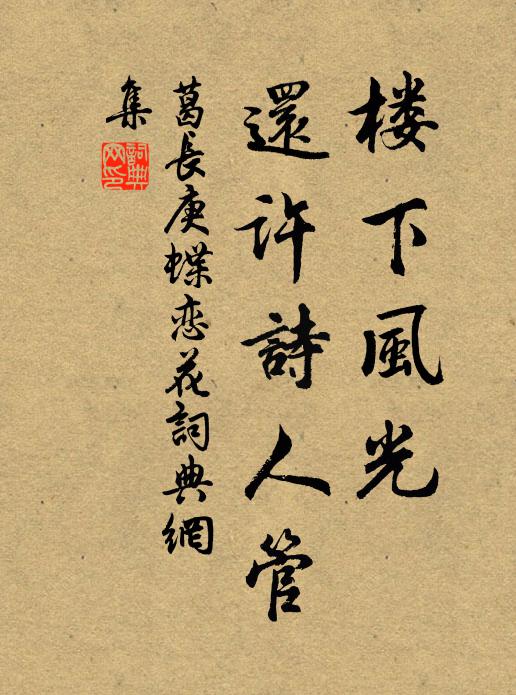 楼下風光
還許詩人管
葛長庚蝶恋花詞典網
集
詞典網印